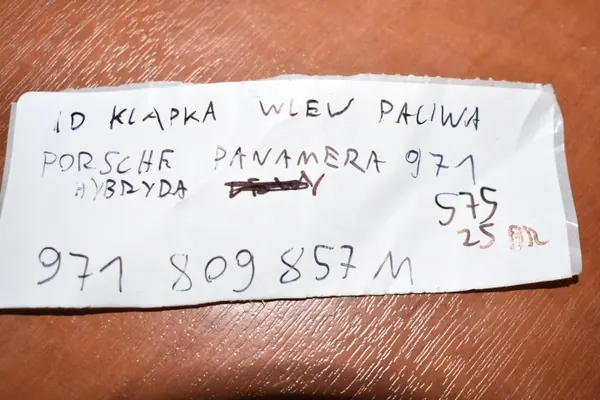 ID KLAPKA WLEW PALIWA
PORSCHE PANAMERA 971
HYBRYDA
575
25
971 809 857 M